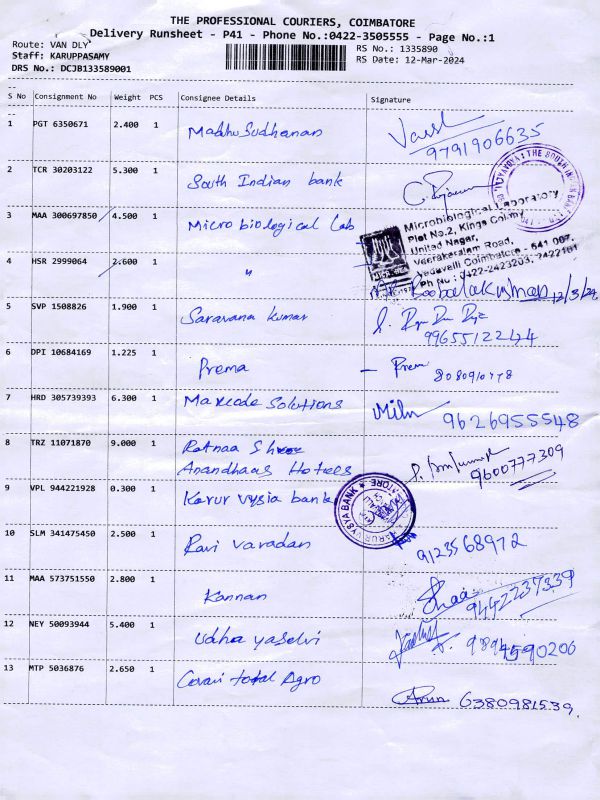 THE PROFESSIONAL COURIERS, COIMBATORE
Delivery Runsheet - P41 - Phone No.:0422-3505555 - Page No.:1
Route: VAN DLY
Staff: KARUPPASAMY
DRS No.: DCJB133589001
RS No.: 1335890
RS Date: 12-Mar-2024
S No Consignment No Weight PCS Consignee Details Signature
1 PGT 6350671 2.400 1 Madhu Sudhanan
9791906635
2 TCR 30203122 5.300 1 South Indian bank
THE SOUTH INDIAN BANK
3 MAA 300697850 4.500 1 Micro biological Lab
Microbiological Laboratory
Plot No.2, Kings Colony
United Nagar,
Veerakeralam Road,
Vadavalli Coimbatore - 641 007.
Ph No : 0422-2423203, 2422101
4 HSR 2999064 2.600 1 "
12/3/24
5 SVP 1508826 1.900 1 Saravana kumar
9965512244
6 DPI 10684169 1.225 1 Prema
- Prem
7 HRD 305739393 6.300 1 Maxcode Solutions
9626955548
8 TRZ 11071870 9.000 1 Ratnaa Shree
Anandhaas Hotels
9600777309
9 VPL 944221928 0.300 1 Karur vysia bank
KARUR VYSYA BANK
10 SLM 341475450 2.500 1 Ravi varadan
9123568972
11 MAA 573751550 2.800 1 Kannan
9442237339
12 NEY 50093944 5.400 1 Udha yaselvi
9894590206
13 MTP 5036876 2.650 1 Covai total Agro
Arun 6380981539.